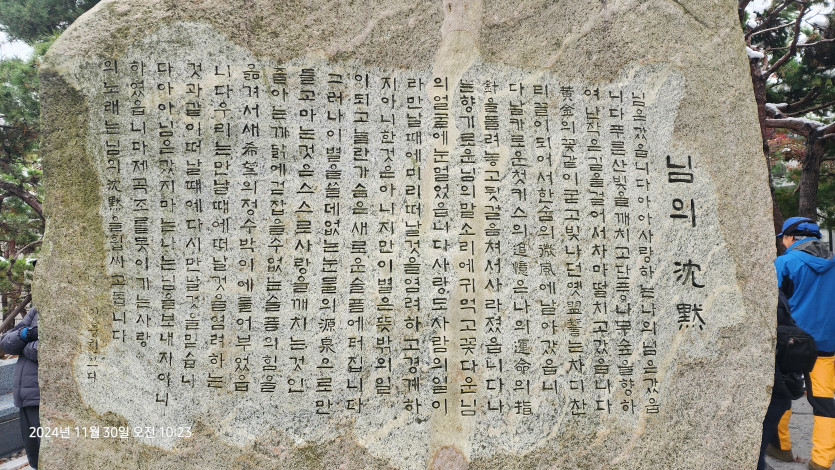 님의 沈默
님은갔읍니다아아사랑하는나의님은갔읍
니다푸른산빛을깨치고단풍나무숲을향하
여난적은길을걸어서차마떨치고갔읍니다
黃金의꽃같이굳고빛나던옛盟誓는차디찬
티끌이되어서한숨의微風에날아갔읍니
다날카로운첫키스의追憶은나의運命의指
針을돌려놓고뒷걸음쳐서사라졌읍니다나
는향기로운님의말소리에귀먹고꽃다운님
의얼굴에눈멀었읍니다사랑도사람의일이
라만날때에미리떠날것을염려하고경계하
지아니한것은아니지만이별은뜻밖의일
이되고놀란가슴은새로운슬픔에터집니다
그러나이별을쓸데없는눈물의源泉으로만
들고마는것은스스로사랑을깨치는것인
줄아는까닭에걷잡을수없는슬픔의힘을
옮겨서새希望의정수박이에들어부었읍
니다우리는만날때에떠날것을염려하는
것과같이떠날때에다시만날것을믿습니
다아아님은갔지마는나는님을보내지아니
하였읍니다제곡조를못이기는사랑
의노래는님의沈默을휩싸고돕니다
2024년 11월 30일 오전 10:23